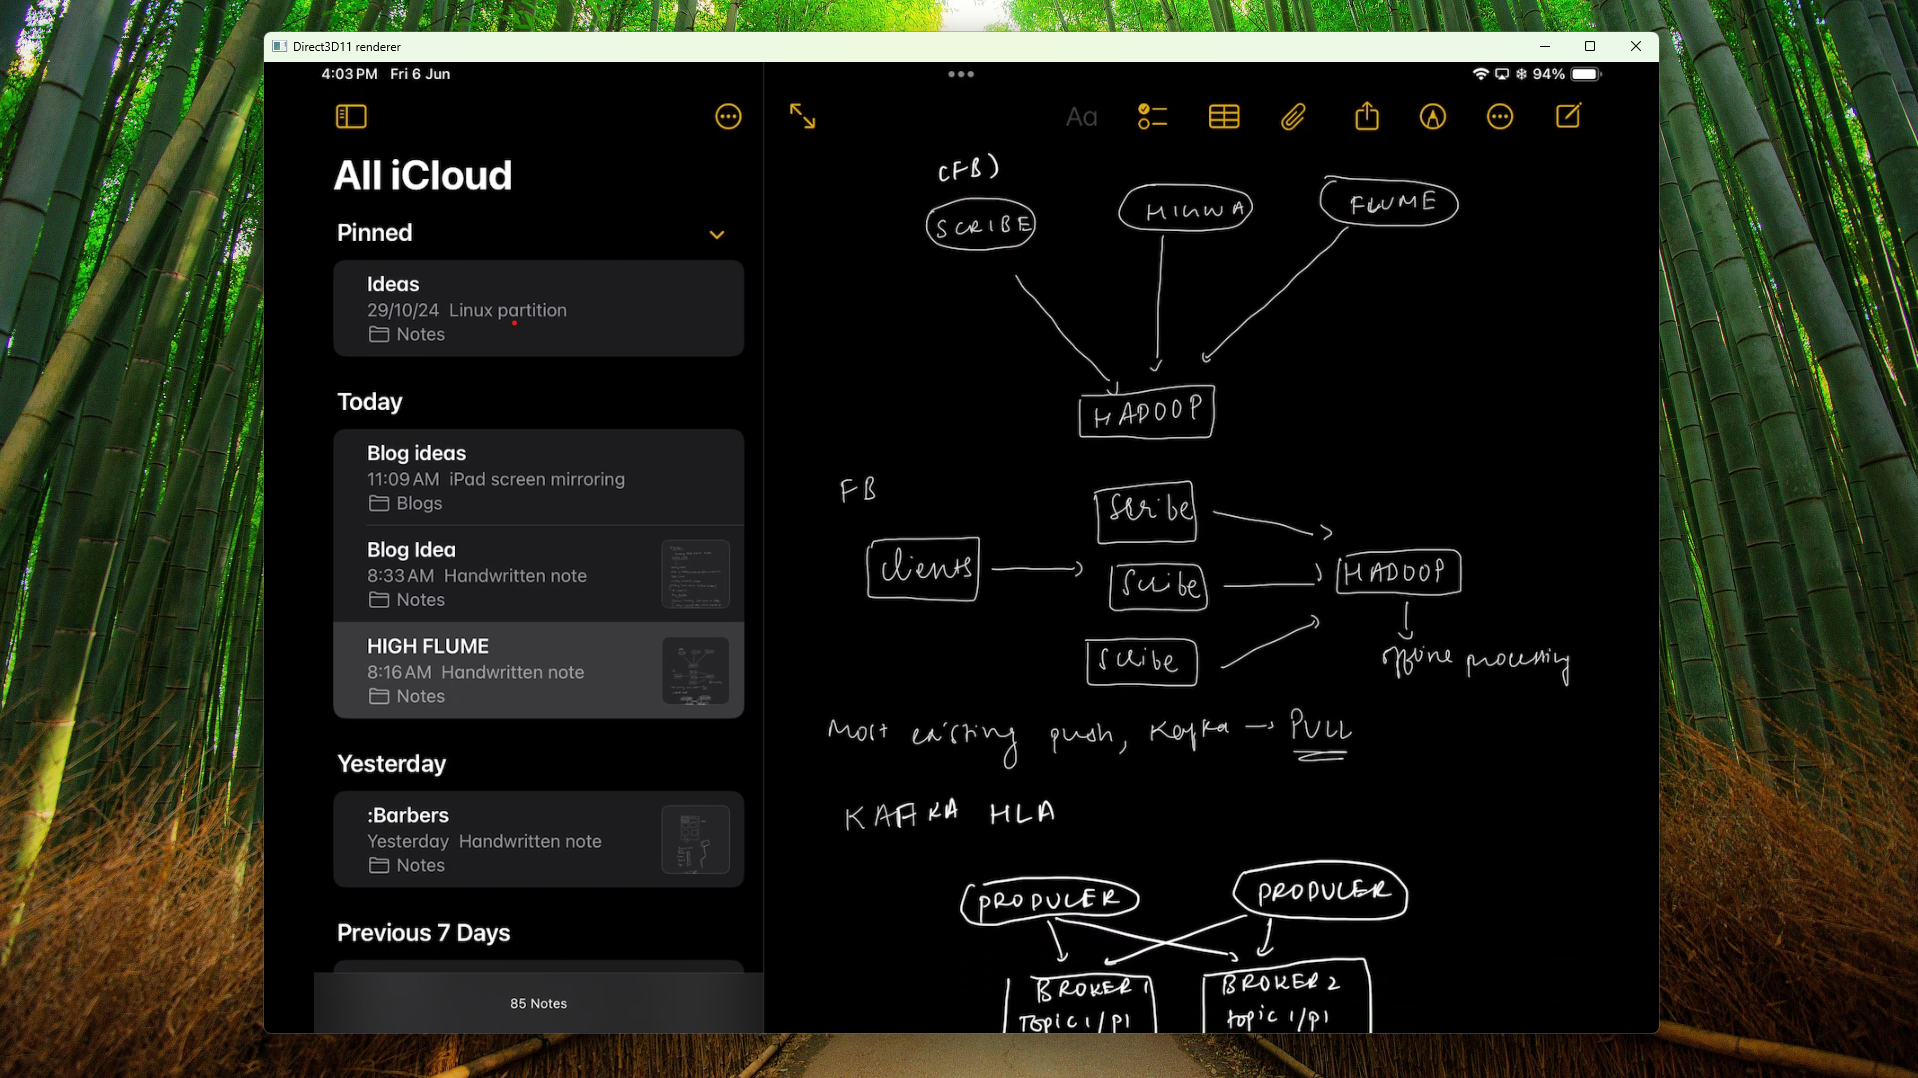 Direct3D11 renderer
4:03 PM Fri 6 Jun
94%
All iCloud
Pinned
Ideas
29/10/24 Linux partition
Notes
Today
Blog ideas
11:09 AM iPad screen mirroring
Blogs
Blog Idea
8:33 AM Handwritten note
Notes
HIGH FLUME
8:16 AM Handwritten note
Notes
Yesterday
:Barbers
Yesterday Handwritten note
Notes
Previous 7 Days
85 Notes
Aa
(FB)
SCRIBE
FLUME
HADOOP
FB
Clients
Scribe
Scribe
Scribe
HADOOP
offline processing
Most existing push, Kafka → PULL
KAFKA HLA
PRODUCER PRODUCER
BROKER 1 BROKER 2
Topic 1/P1 topic 1/P1